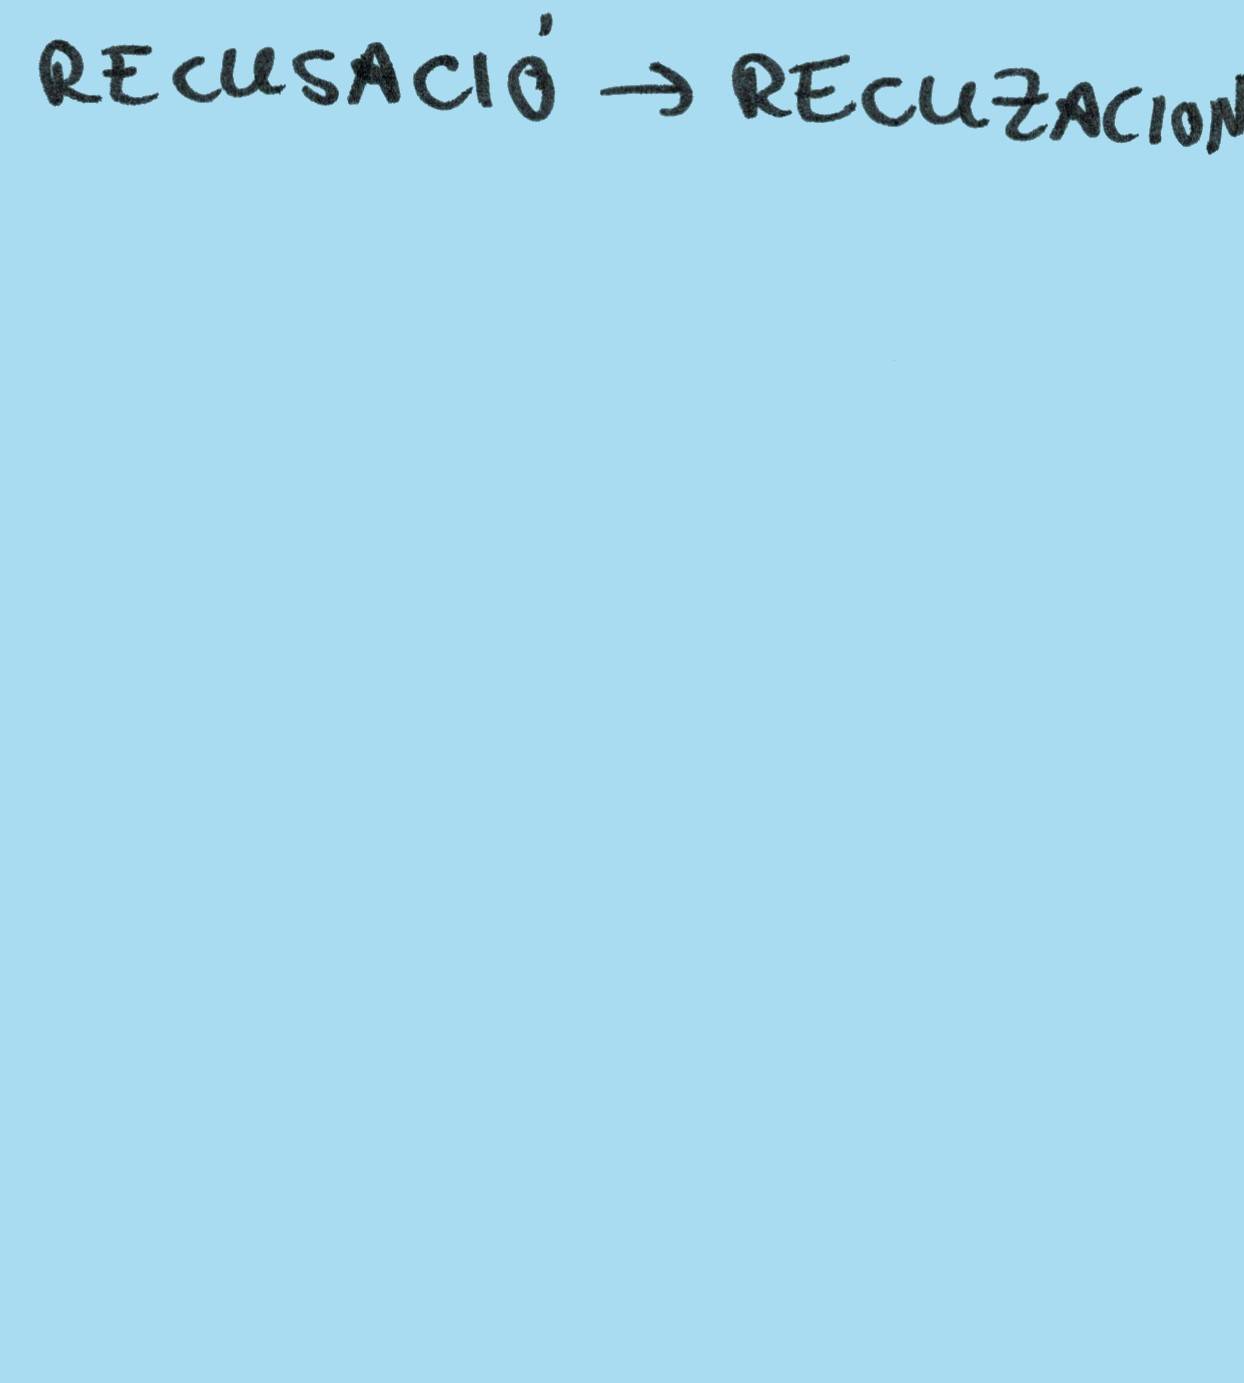 RECUSACIÓ → RECUZACION